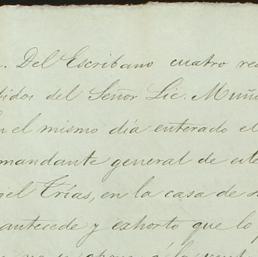 . Del Escribano cuatro re
didos del Señor Lic. Muñ
n el mismo día enterado el
mandante general de este
el Trías, en la casa de s
antecede y exhorto que lo